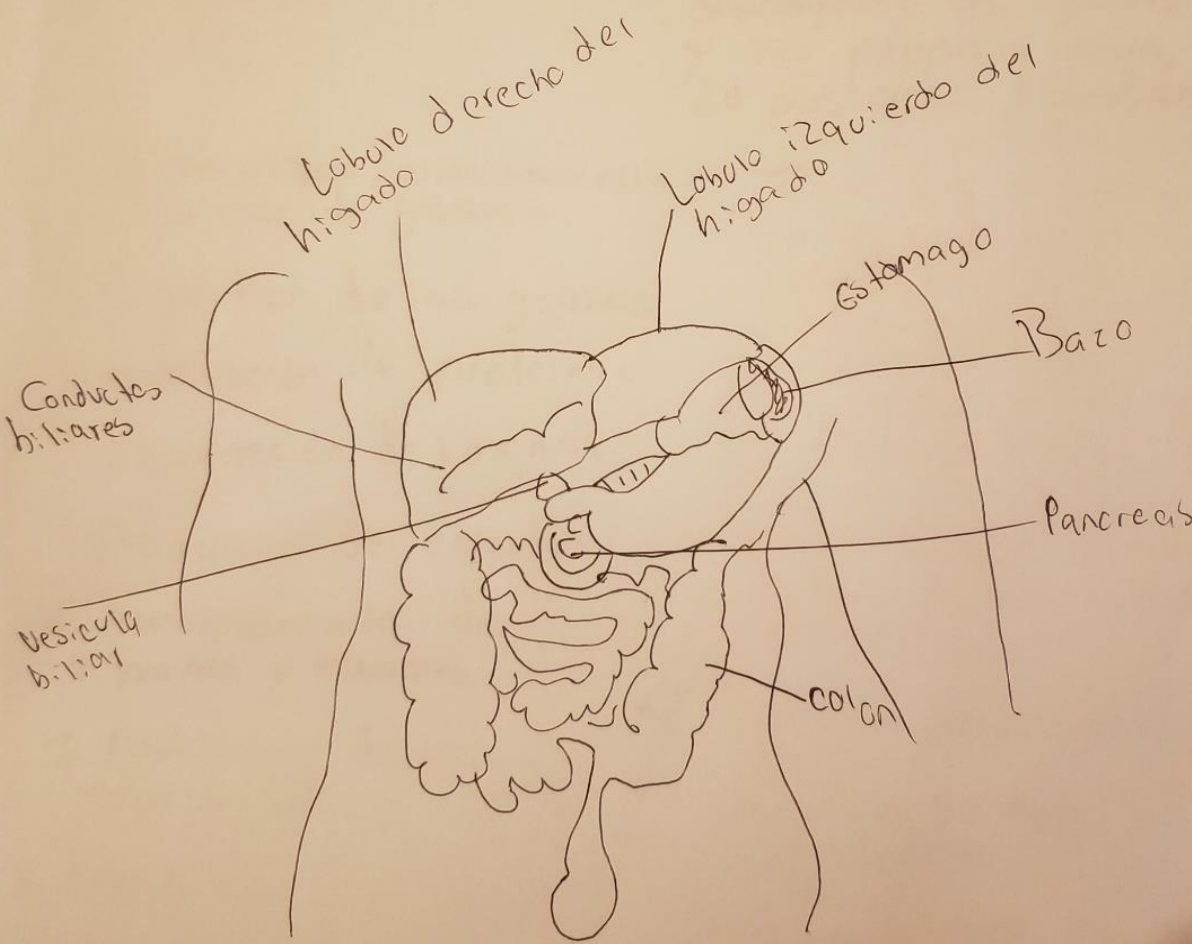 Lobulo derecho del
higado
Lobulo izquierdo del
higado
Estomago
Bazo
Conductos
biliares
Pancreas
vesicula
biliar
colon